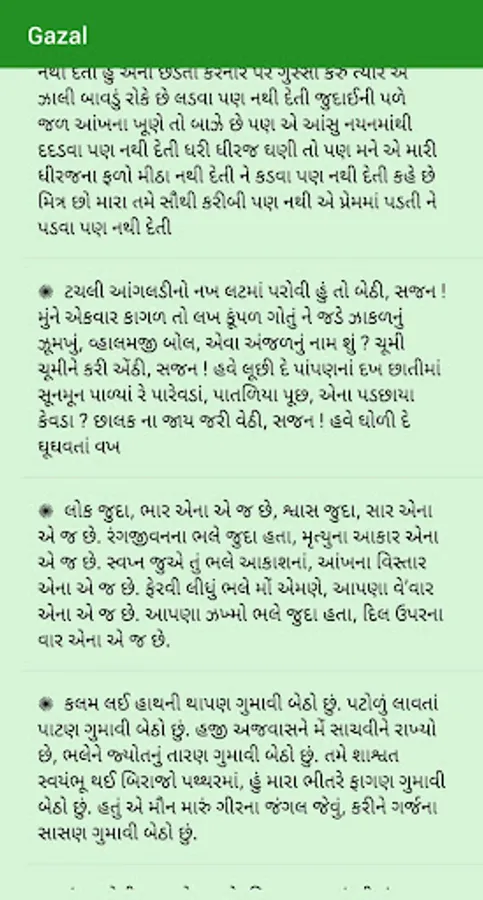 Gazal
નથી દેતી હું એના છેડતી કરનાર પર ગુસ્સો કરુ ત્યારે એ
ઝાલી બાવડું રોકે છે લડવા પણ નથી દેતી જુદાઈની પળે
જળ આંખના ખૂણે તો બાઝે છે પણ એ આંસુ નયનમાંથી
દદડવા પણ નથી દેતી ધરી ધીરજ ઘણી તો પણ મને એ મારી
ધીરજના ફળો મીઠા નથી દેતી ને કડવા પણ નથી દેતી કહે છે
મિત્ર છો મારા તમે સૌથી કરીબી પણ નથી એ પ્રેમમાં પડતી ને
પડવા પણ નથી દેતી
✺ ટચલી આંગલડીનો નખ લટમાં પરોવી હું તો બેઠી, સજન !
મુંને એકવાર કાગળ તો લખ કૂંપળ ગોતું ને જડે ઝાકળનું
ઝૂમખું, વ્હાલમજી બોલ, એવા અંજળનું નામ શું ? ચૂમી
ચૂમીને કરી એંઠી, સજન ! હવે લૂછી દે પાંપણનાં દખ છાતીમાં
સૂનમૂન પાળ્યાં રે પારેવડાં, પાતળિયા પૂછ, એના પડછાયા
કેવડા ? છાલક ના જાય જરી વેઠી, સજન ! હવે ઘોળી દે
ઘૂઘવતાં વખ
✺ લોક જુદા, ભાર એના એ જ છે, શ્વાસ જુદા, સાર એના
એ જ છે. રંગજીવનના ભલે જુદા હતા, મૃત્યુના આકાર એના
એ જ છે. સ્વપ્ન જુએ તું ભલે આકાશનાં, આંખના વિસ્તાર
એના એ જ છે. ફેરવી લીધું ભલે મોં એમણે, આપણા વે'વાર
એના એ જ છે. આપણા ઝખ્મો ભલે જુદા હતા, દિલ ઉપરના
વાર એના એ જ છે.
✺ કલમ લઈ હાથની થાપણ ગુમાવી બેઠો છું. પટોળું લાવતાં
પાટણ ગુમાવી બેઠો છું. હજી અજવાસને મેં સાચવીને રાખ્યો
છે, ભલેને જ્યોતનું તારણ ગુમાવી બેઠો છું. તમે શાશ્વત
સ્વયંભૂ થઈ બિરાજો પથ્થરમાં, હું મારા ભીતરે ફાગણ ગુમાવી
બેઠો છું. હતું એ મૌન મારું ગીરના જંગલ જેવું, કરીને ગર્જના
સાસણ ગુમાવી બેઠો છું.